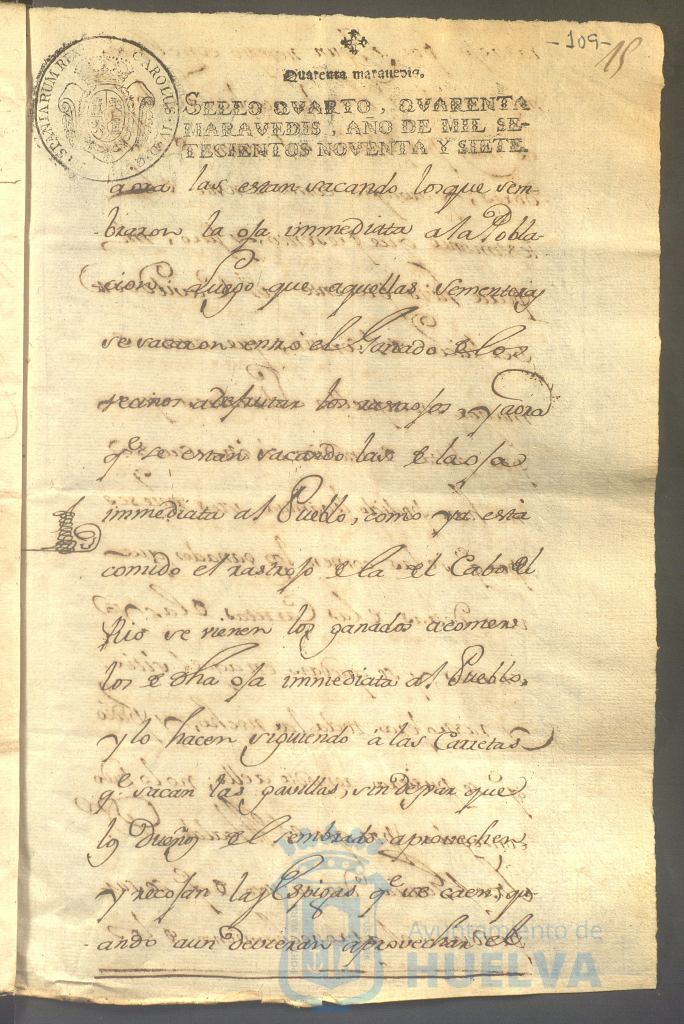 -109-
15
Quarenta maravedis.
HISPANIARUM REX CAROLUS IV D G
SELLO QVARTO, QVARENTA
MARAVEDIS, AÑO DE MIL SE-
TECIENTOS NOVENTA Y SIETE.
aora las estan sacando los que sem-
braron la oja immediata a la Pobla-
cion. Luego que aquellas sementeras
se sacaron entró el Ganado de los
vecinos a desfrutar los rastrojos, y aora
qe. se estan sacando las de la oja
immediata al Pueblo, como ya está
comido el rastrojo de la del Cabo del
Rio se vienen los ganados a comer
los de dha oja immediata al Pueblo,
y lo hacen siguiendo à las Carretas
qe. sacan las gavillas, sin dejar que
los Dueños del sembrado aprovechen,
y recojan las Espigas qe. se caen, qu-
ando aun devieran aprovecharse el
Ayuntamiento de
HUELVA